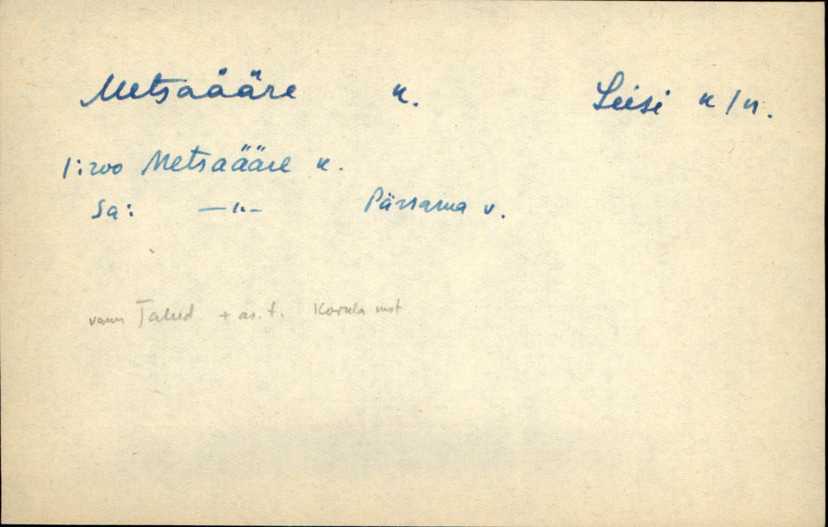 Metsaääre k. Leisi k/n.
1:200 Metsaääre k.
Sa: —"— Pärsama v.
Talud + as. t. mst